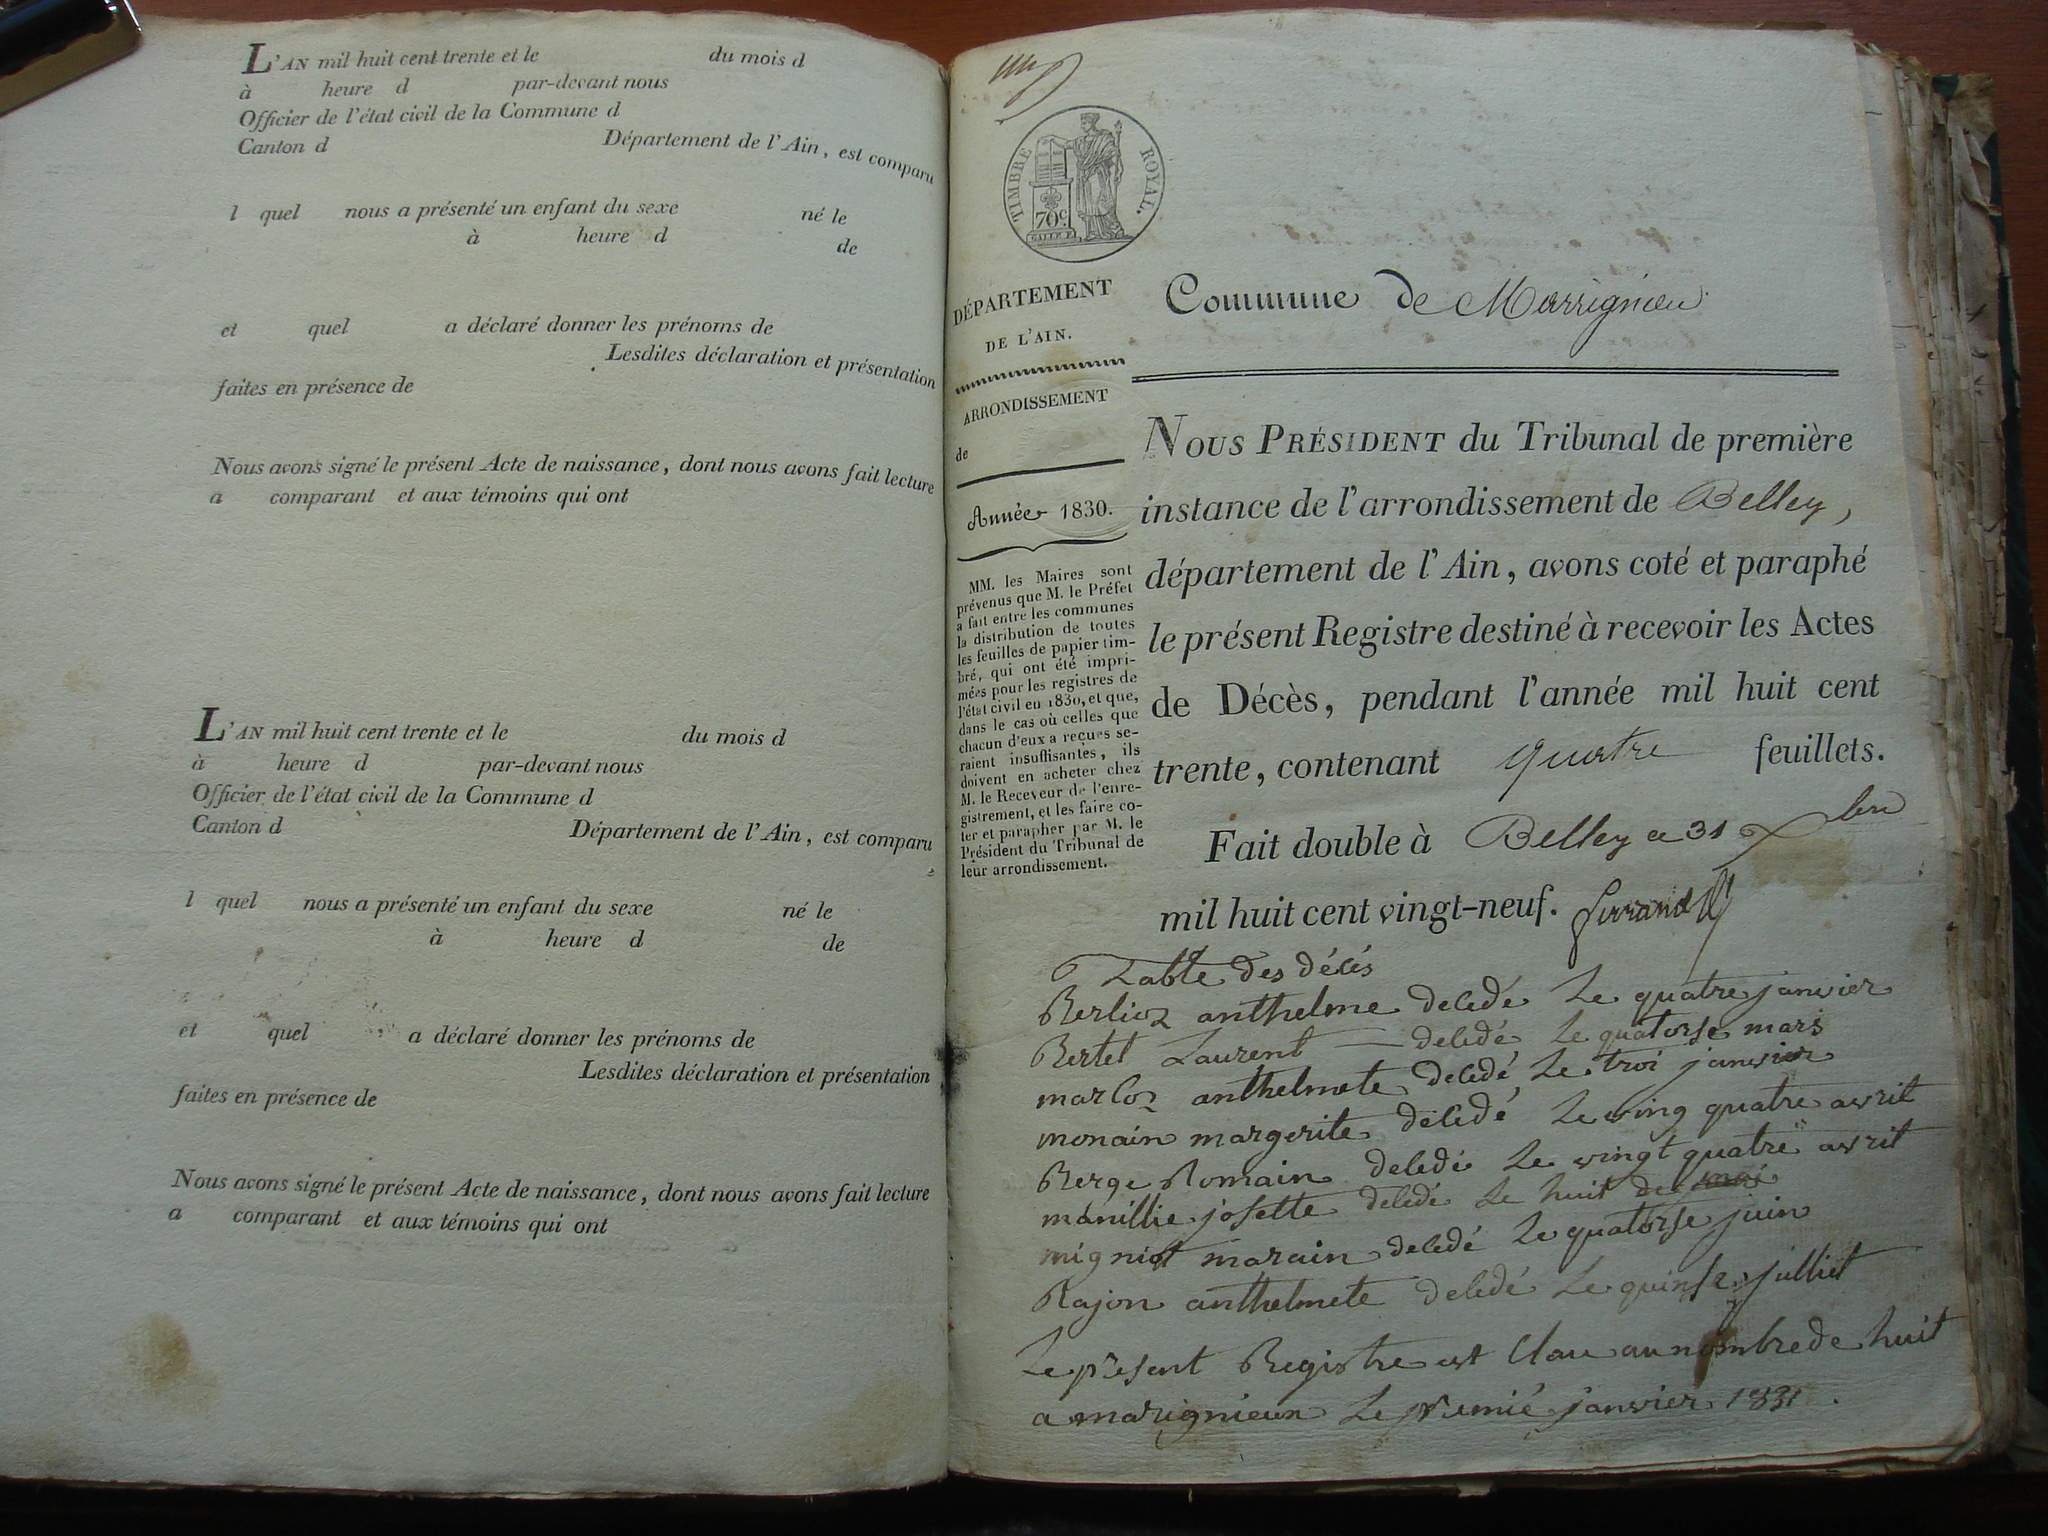 L'AN mil huit cent trente et le du mois d
à heure d par-devant nous
Officier de l'état civil de la Commune d
Canton d Département de l'Ain, est comparu
l quel nous a présenté un enfant du sexe né le
à heure d de
et quel a déclaré donner les prénoms de
Lesdites déclaration et présentation
faites en présence de
Nous avons signé le présent Acte de naissance, dont nous avons fait lecture
a comparant et aux témoins qui ont
L'AN mil huit cent trente et le du mois d
à heure d par-devant nous
Officier de l'état civil de la Commune d
Canton d Département de l'Ain, est comparu
l quel nous a présenté un enfant du sexe né le
à heure d de
et quel a déclaré donner les prénoms de
Lesdites déclaration et présentation
faites en présence de
Nous avons signé le présent Acte de naissance, dont nous avons fait lecture
a comparant et aux témoins qui ont
TIMBRE ROYAL.
70c
DÉPARTEMENT
DE L'AIN.
ARRONDISSEMENT
de
Année 1830.
MM. les Maires sont
prévenus que M. le Préfet
a fait entre les communes
la distribution de toutes
les feuilles de papier tim-
bré, qui ont été impri-
mées pour les registres de
l'état civil en 1830, et que,
dans le cas où celles que
chacun d'eux a reçues se-
raient insuffisantes, ils
doivent en acheter chez
M. le Receveur de l'enre-
gistrement, et les faire co-
ter et parapher par M. le
Président du Tribunal de
leur arrondissement.
Commune de Marrignieu
NOUS PRÉSIDENT du Tribunal de première
instance de l'arrondissement de Belley,
département de l'Ain, avons coté et paraphé
le présent Registre destiné à recevoir les Actes
de Décès, pendant l'année mil huit cent
trente, contenant quatre feuillets.
Fait double à Belley ce 31 Xbre
mil huit cent vingt-neuf. ferrand
Table des décés
Berlioz anthelme décédé le quatre janvier
Bertet Laurent décédé le quatorse mars
marloz anthelmete décédé le troi janvier
monain margerite décédé le ving quatre avril
Berge Romain décédé le vingt quatre avril
manillie josette décédé le huit de mai
migniot marain décédé le quatorse juin
Rajon anthelmete décédé le quinse julliet
Le présent Registre est Clau au nombre de huit
a marignieux Le premié janvier 1831.